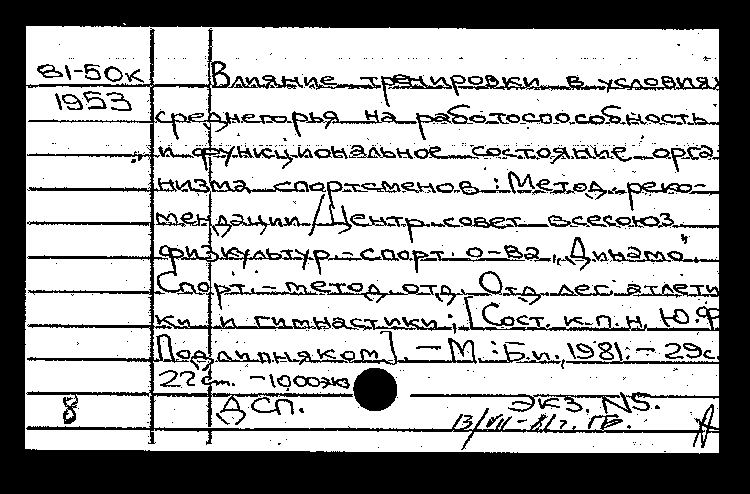 81-50к Влияние тренировки в условиях
1953 среднегорья на работоспособность
и функциональное состояние орга-
низма спортсменов : Метод. реко-
мендации / Центр. совет всесоюз.
физкультур.-спорт. о-ва „Динамо".
Спорт.-метод. отд. Отд. лег. атлети
ки и гимнастики ; [Сост. к.п.н. Ю.Ф
Подлипняком]. — М. : Б.и., 1981. — 29с.
22 см. — 1000 экз
8 ДСП. Экз. N5.
13/VII-81г.